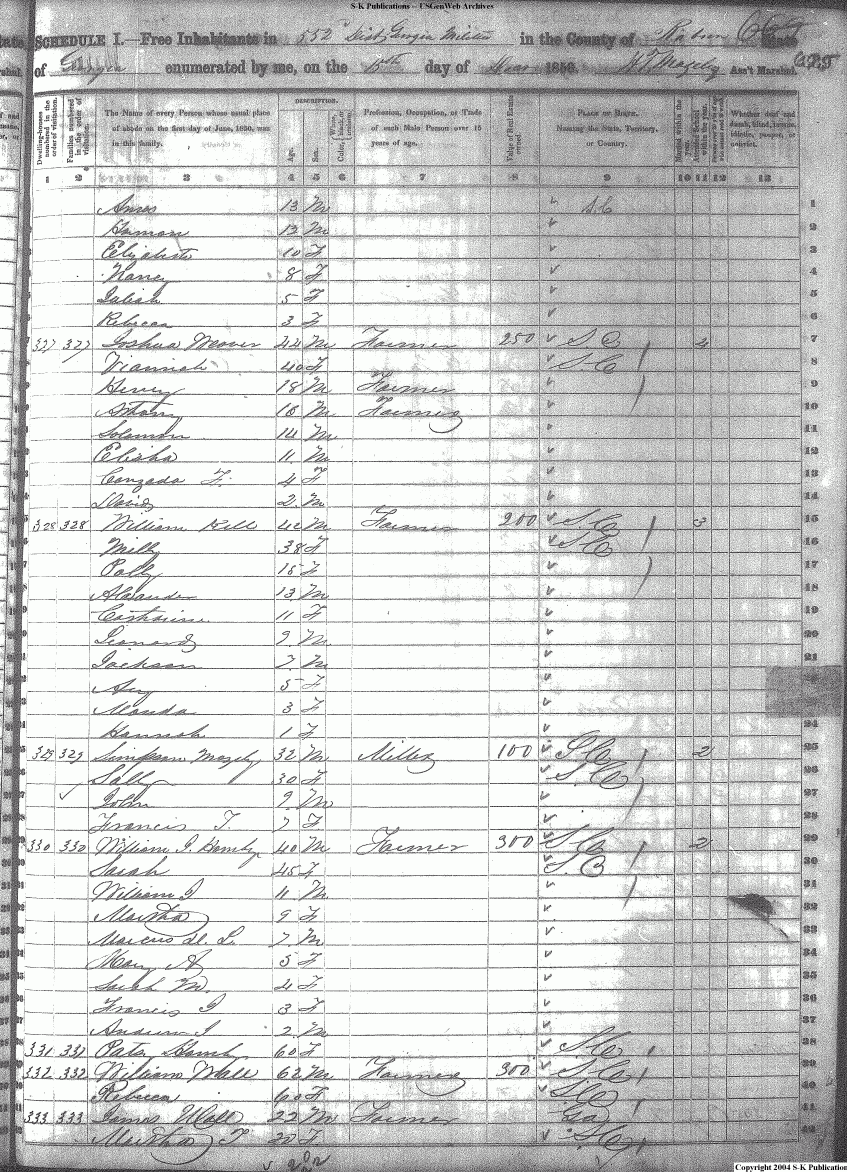 S-K Publications – USGenWeb Archives
SCHEDULE I.—Free Inhabitants in 552 Dist Georgia Militia in the County of Rabun State
of Georgia enumerated by me, on the day of 1850. Ass't Marshal.
Dwelling-houses numbered in the order of visitation.
Families numbered in the order of visitation.
The Name of every Person whose usual place of abode on the first day of June, 1850, was in this family.
DESCRIPTION.
Age.
Sex.
Color, White, black, or mulatto.
Profession, Occupation, or Trade of each Male Person over 15 years of age.
Value of Real Estate owned
PLACE OF BIRTH.
Naming the State, Territory, or Country.
Married within the year.
Whether deaf and dumb, blind, insane, idiotic, pauper, or convict.
1 2 3 4 5 6 7 8 9 10 11 12 13
13 M S.C 1
12 M 2
Elizabeth 10 F 3
Nancy 8 F 4
5 F 5
Rebecca 3 F 6
327 327 Joshua Weaver 44 M Farmer 250 S C 4 7
40 F S.C 8
Henry 18 M Farmer 9
16 M Farmer 10
Solomon 14 M 11
Elisha 11 M 12
F. 4 F 13
David 2 M 14
328 328 William Kell 42 M Farmer 200 S.C 3 15
Milly 38 F S.C 16
Polly 15 F 17
Alexander 13 M 18
Catharine 11 F 19
Leonard 9 M 20
Jackson 7 M 21
5 F
3 F
Hannah 1 F 24
329 329 Simpson Mozely 32 M Miller 100 S.C 2 25
Sally 30 F S.C 26
John 9 M 27
Francis T. 7 F 28
330 330 William J. Hamby 40 M Farmer 300 S.C 2 29
Sarah 45 F S.C 30
William J 11 M 31
Martha 9 F 32
Marcus de L. 7 M 33
Mary A 5 F 34
Sarah M. 4 F 35
Francis 3 F 36
Andrew J 2 M 37
331 331 60 F S.C 38
332 332 William Wall 62 M Farmer 300 S.C 39
Rebecca 60 F S.C 40
333 333 James Wall 22 M Farmer Ga 41
Martha T. 20 F S.C 42
Copyright 2004 S-K Publication